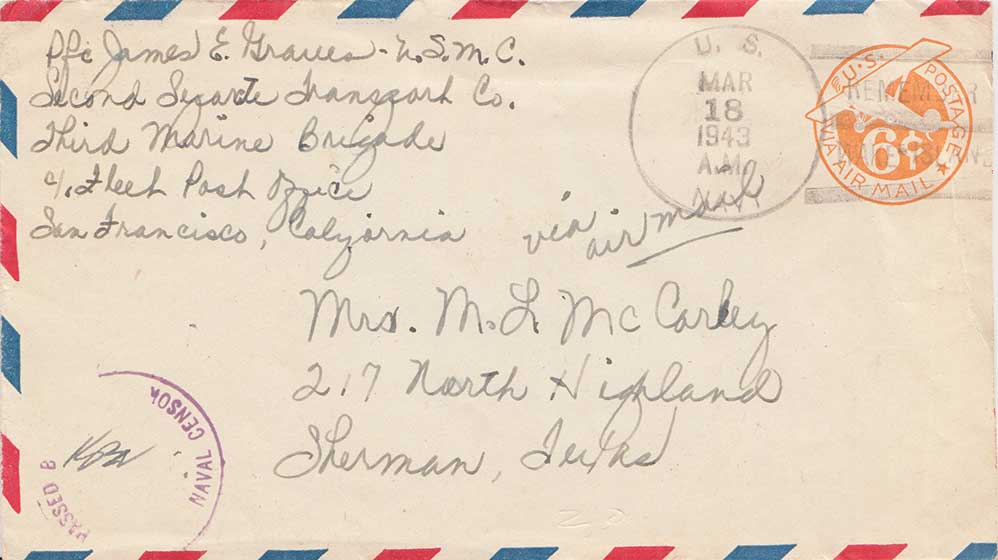 Pfc James E. Graves - U.S.M.C.
Second Separte Transport Co.
Third Marine Brigade
c/o Fleet Post Office
San Francisco, California
via
air mail
U. S.
MAR
18
1943
A.M.
NAVY
REMEMBER
WAKE ISLAND
U.S. POSTAGE
6¢
VIA AIR MAIL
Mrs. M. L. McCarley
217 North Highland
Sherman, Texas
PASSED B
NAVAL CENSOR